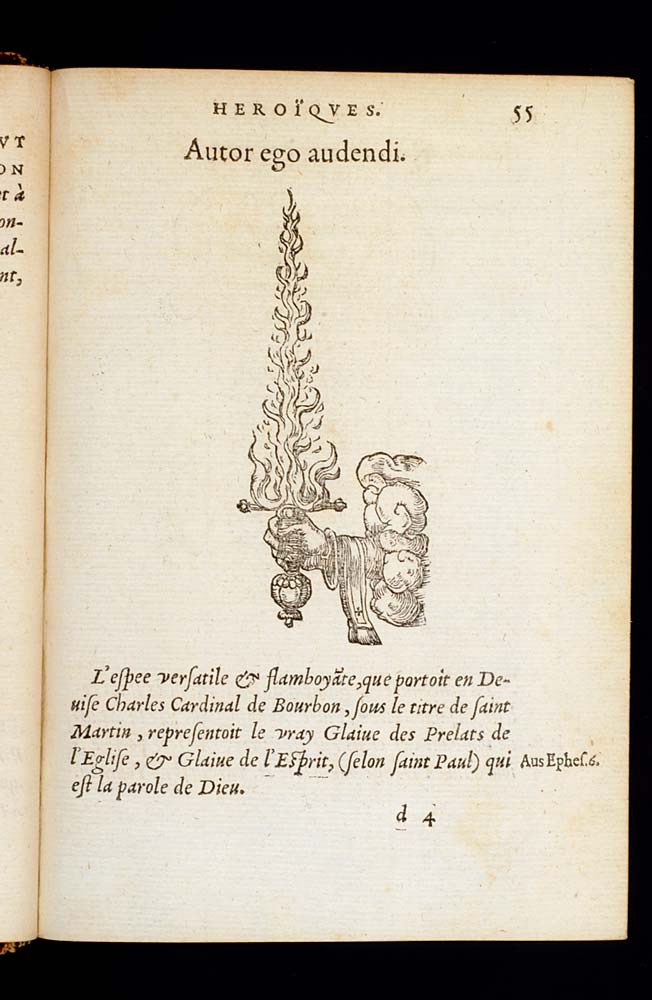 VT
ON
et à
on-
al-
nt,
HEROÏQVES.
55
Autor ego audendi.
L'eſpee verſatile & flamboyãte, que portoit en De-
uiſe Charles Cardinal de Bourbon, ſous le titre de ſaint
Martin, repreſentoit le vray Glaiue des Prelats de
l'Egliſe, & Glaiue de l'Eſprit, (ſelon ſaint Paul) qui
Aus Epheſ.6.
eſt la parole de Dieu.
d 4